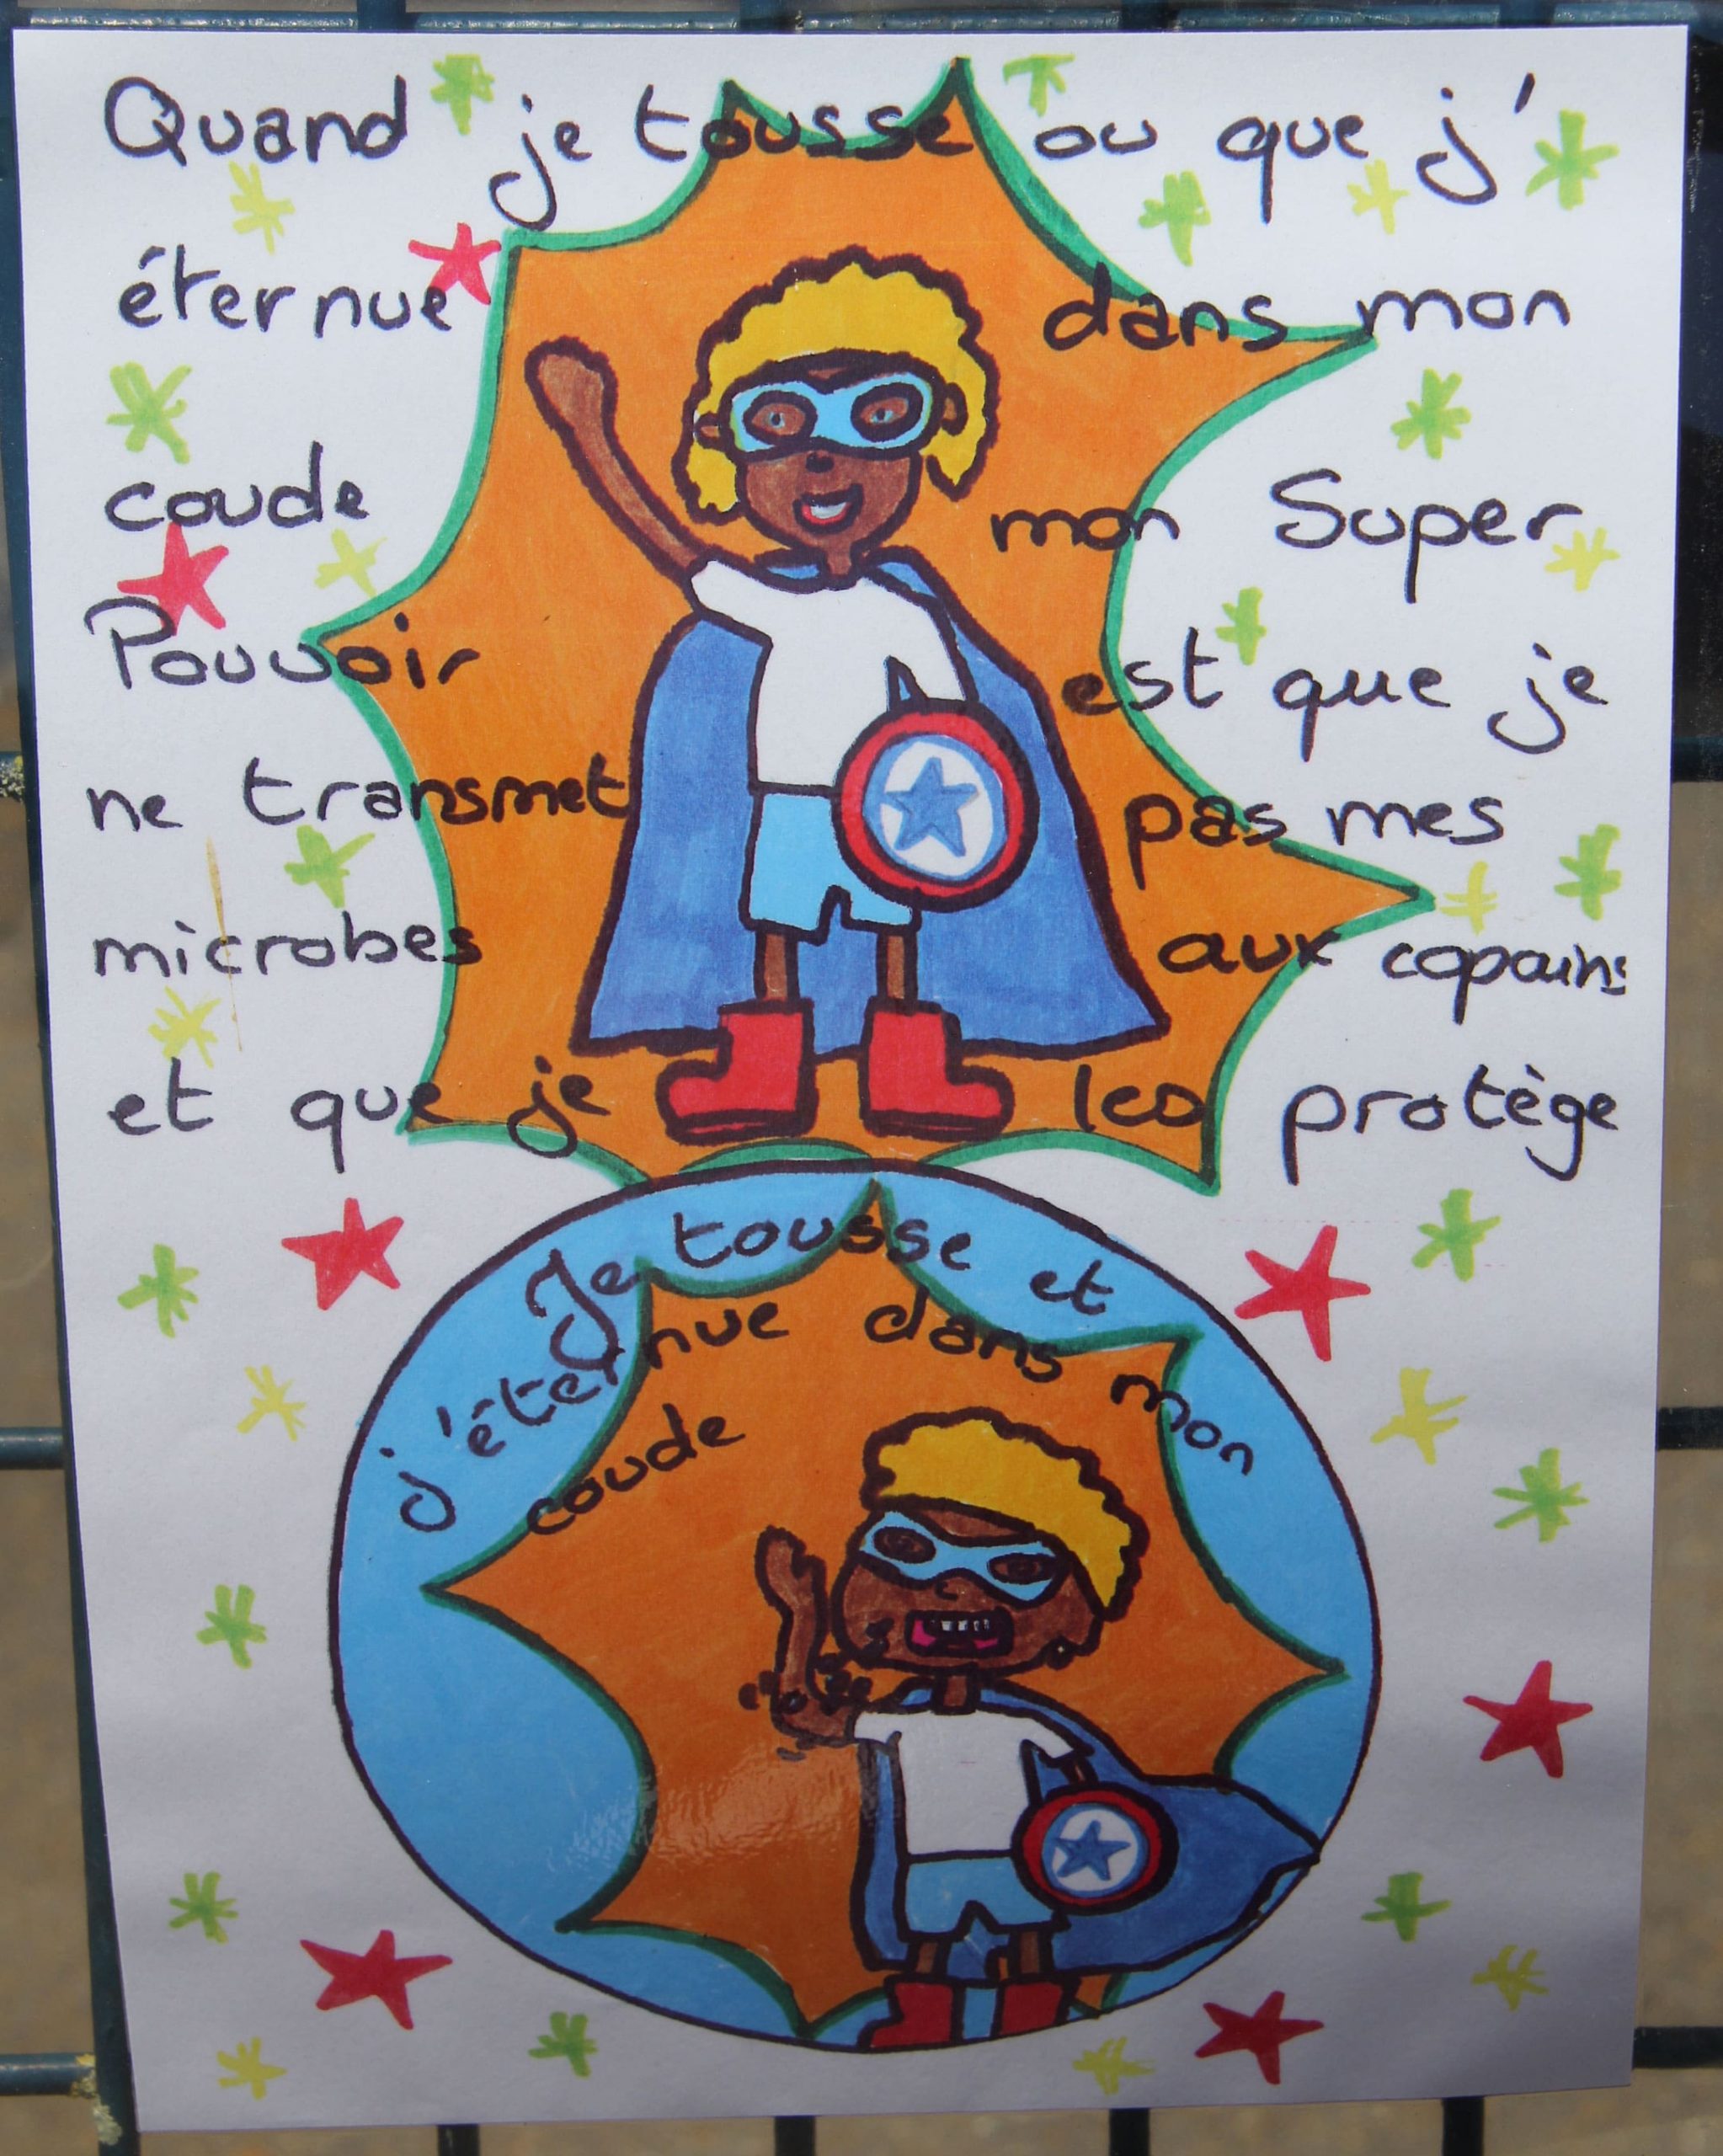 Quand je tousse ou que j'
éternue dans mon
coude mon Super
Pouvoir est que je
ne transmet pas mes
microbes aux copains
et que je les protège
Je tousse et
j'éternue dans mon
coude